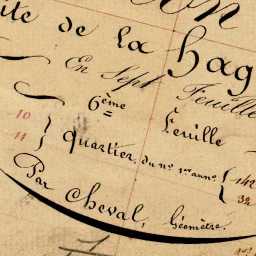 ite de la hag
En Sept Feuille
6ème Feuille
10
11
Quartier du no 1er au no
142
32
Par Cheval, Géomètre.